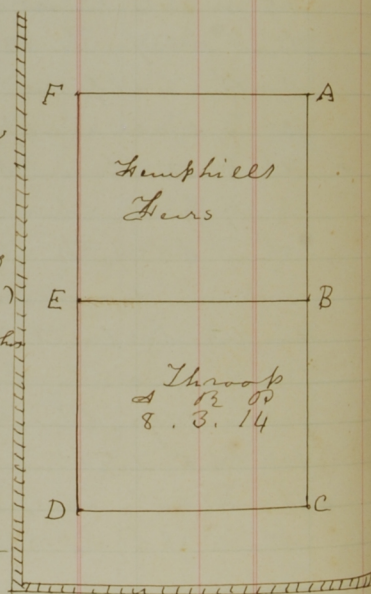 F A
Hemphills
Heirs
E B
Throop
A R P
8 . 3 . 14
D C